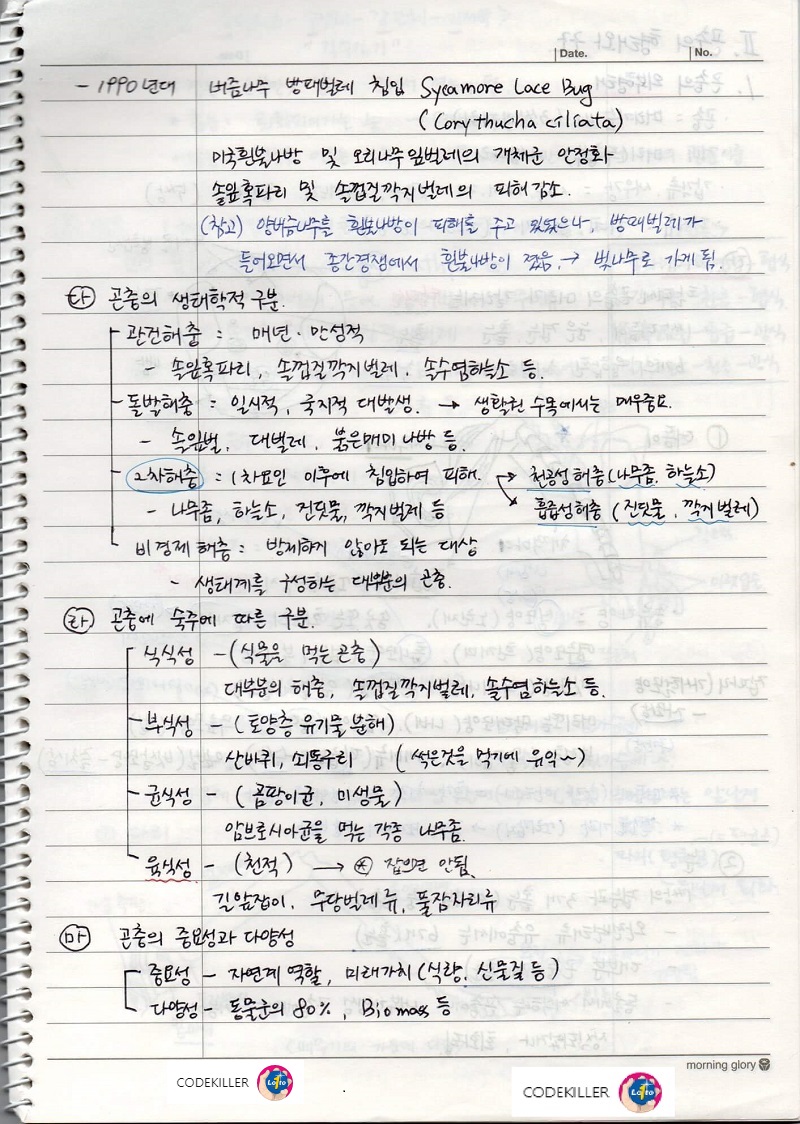 Date. No.
- 1990년대 버즘나무 방패벌레 침입 Sycamore Lace Bug
(Corythucha ciliata)
미국흰불나방 및 오리나무잎벌레의 개체군 안정화
솔잎혹파리 및 솔껍질깍지벌레의 피해 감소.
(참고) 양버즘나무를 흰불나방이 피해를 주고 있었으나, 방패벌레가
들어오면서 종간경쟁에서 흰불나방이 졌음. → 벚나무로 가게 됨.
다 곤충의 생태학적 구분.
관건해충 : 매년·만성적
- 솔잎혹파리, 솔껍질깍지벌레, 솔수염하늘소 등.
돌발해충 : 일시적, 국지적 대발생. → 생활권 수목에서는 매우중요.
- 솔잎벌, 대벌레, 붉은매미나방 등.
2차해충 : 1차요인 이후에 침입하여 피해. 천공성 해충 (나무좀, 하늘소)
- 나무좀, 하늘소, 진딧물, 깍지벌레 등 흡즙성해충 (진딧물, 깍지벌레)
비경제 해충 : 방제하지 않아도 되는 대상
- 생태계를 구성하는 대부분의 곤충.
라 곤충에 숙주에 따른 구분.
식식성 - (식물을 먹는 곤충)
대부분의 해충, 솔껍질깍지벌레, 솔수염하늘소 등.
부식성 - (토양층 유기물 분해)
산바퀴, 쇠똥구리 (썩은것을 먹기에 유익~)
균식성 - (곰팡이균, 미생물)
암브로시아균을 먹는 각종 나무좀.
육식성 - (천적) → 잡으면 안됨.
길앞잡이, 무당벌레류, 풀잠자리류
마 곤충의 중요성과 다양성
중요성 - 자연계 역할, 미래가치 (식량, 신물질 등)
다양성 - 동물군의 80%, Biomass 등
morning glory
CODEKILLER Lotto
CODEKILLER Lotto